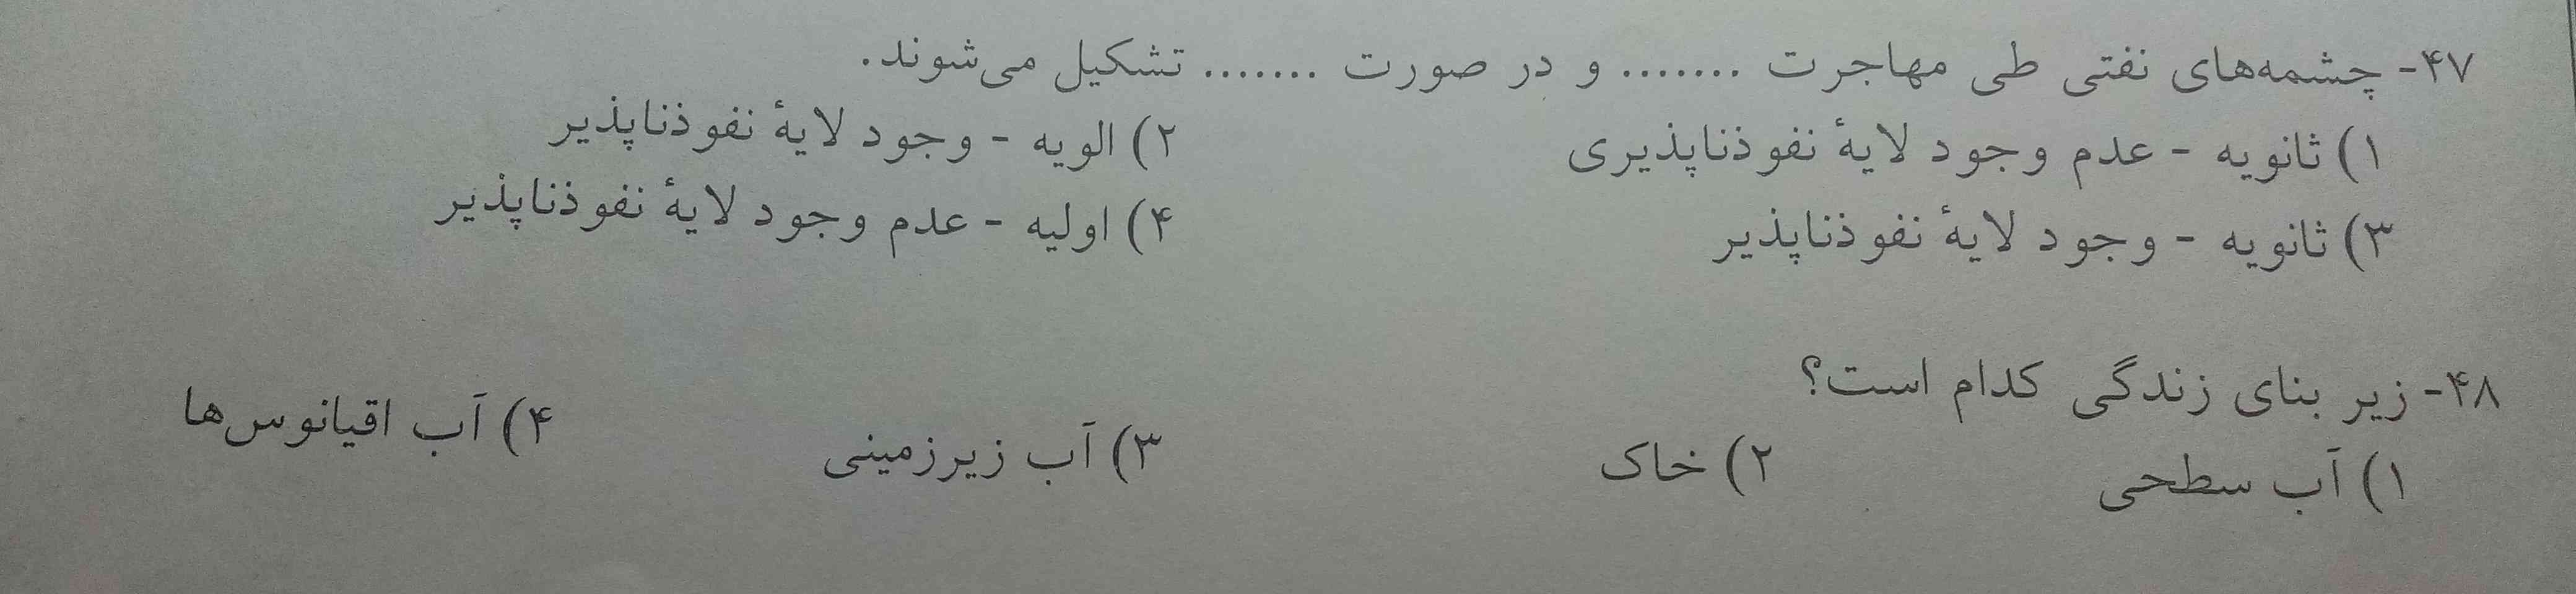 ۴۷- چشمه‌های نفتی طی مهاجرت ....... و در صورت ....... تشکیل می‌شوند.
۱) ثانویه - عدم وجود لایهٔ نفوذناپذیری ۲) الویه - وجود لایهٔ نفوذناپذیر
۳) ثانویه - وجود لایهٔ نفوذناپذیر ۴) اولیه - عدم وجود لایهٔ نفوذناپذیر
۴۸- زیر بنای زندگی کدام است؟
۱) آب سطحی ۲) خاک ۳) آب زیرزمینی ۴) آب اقیانوس‌ها